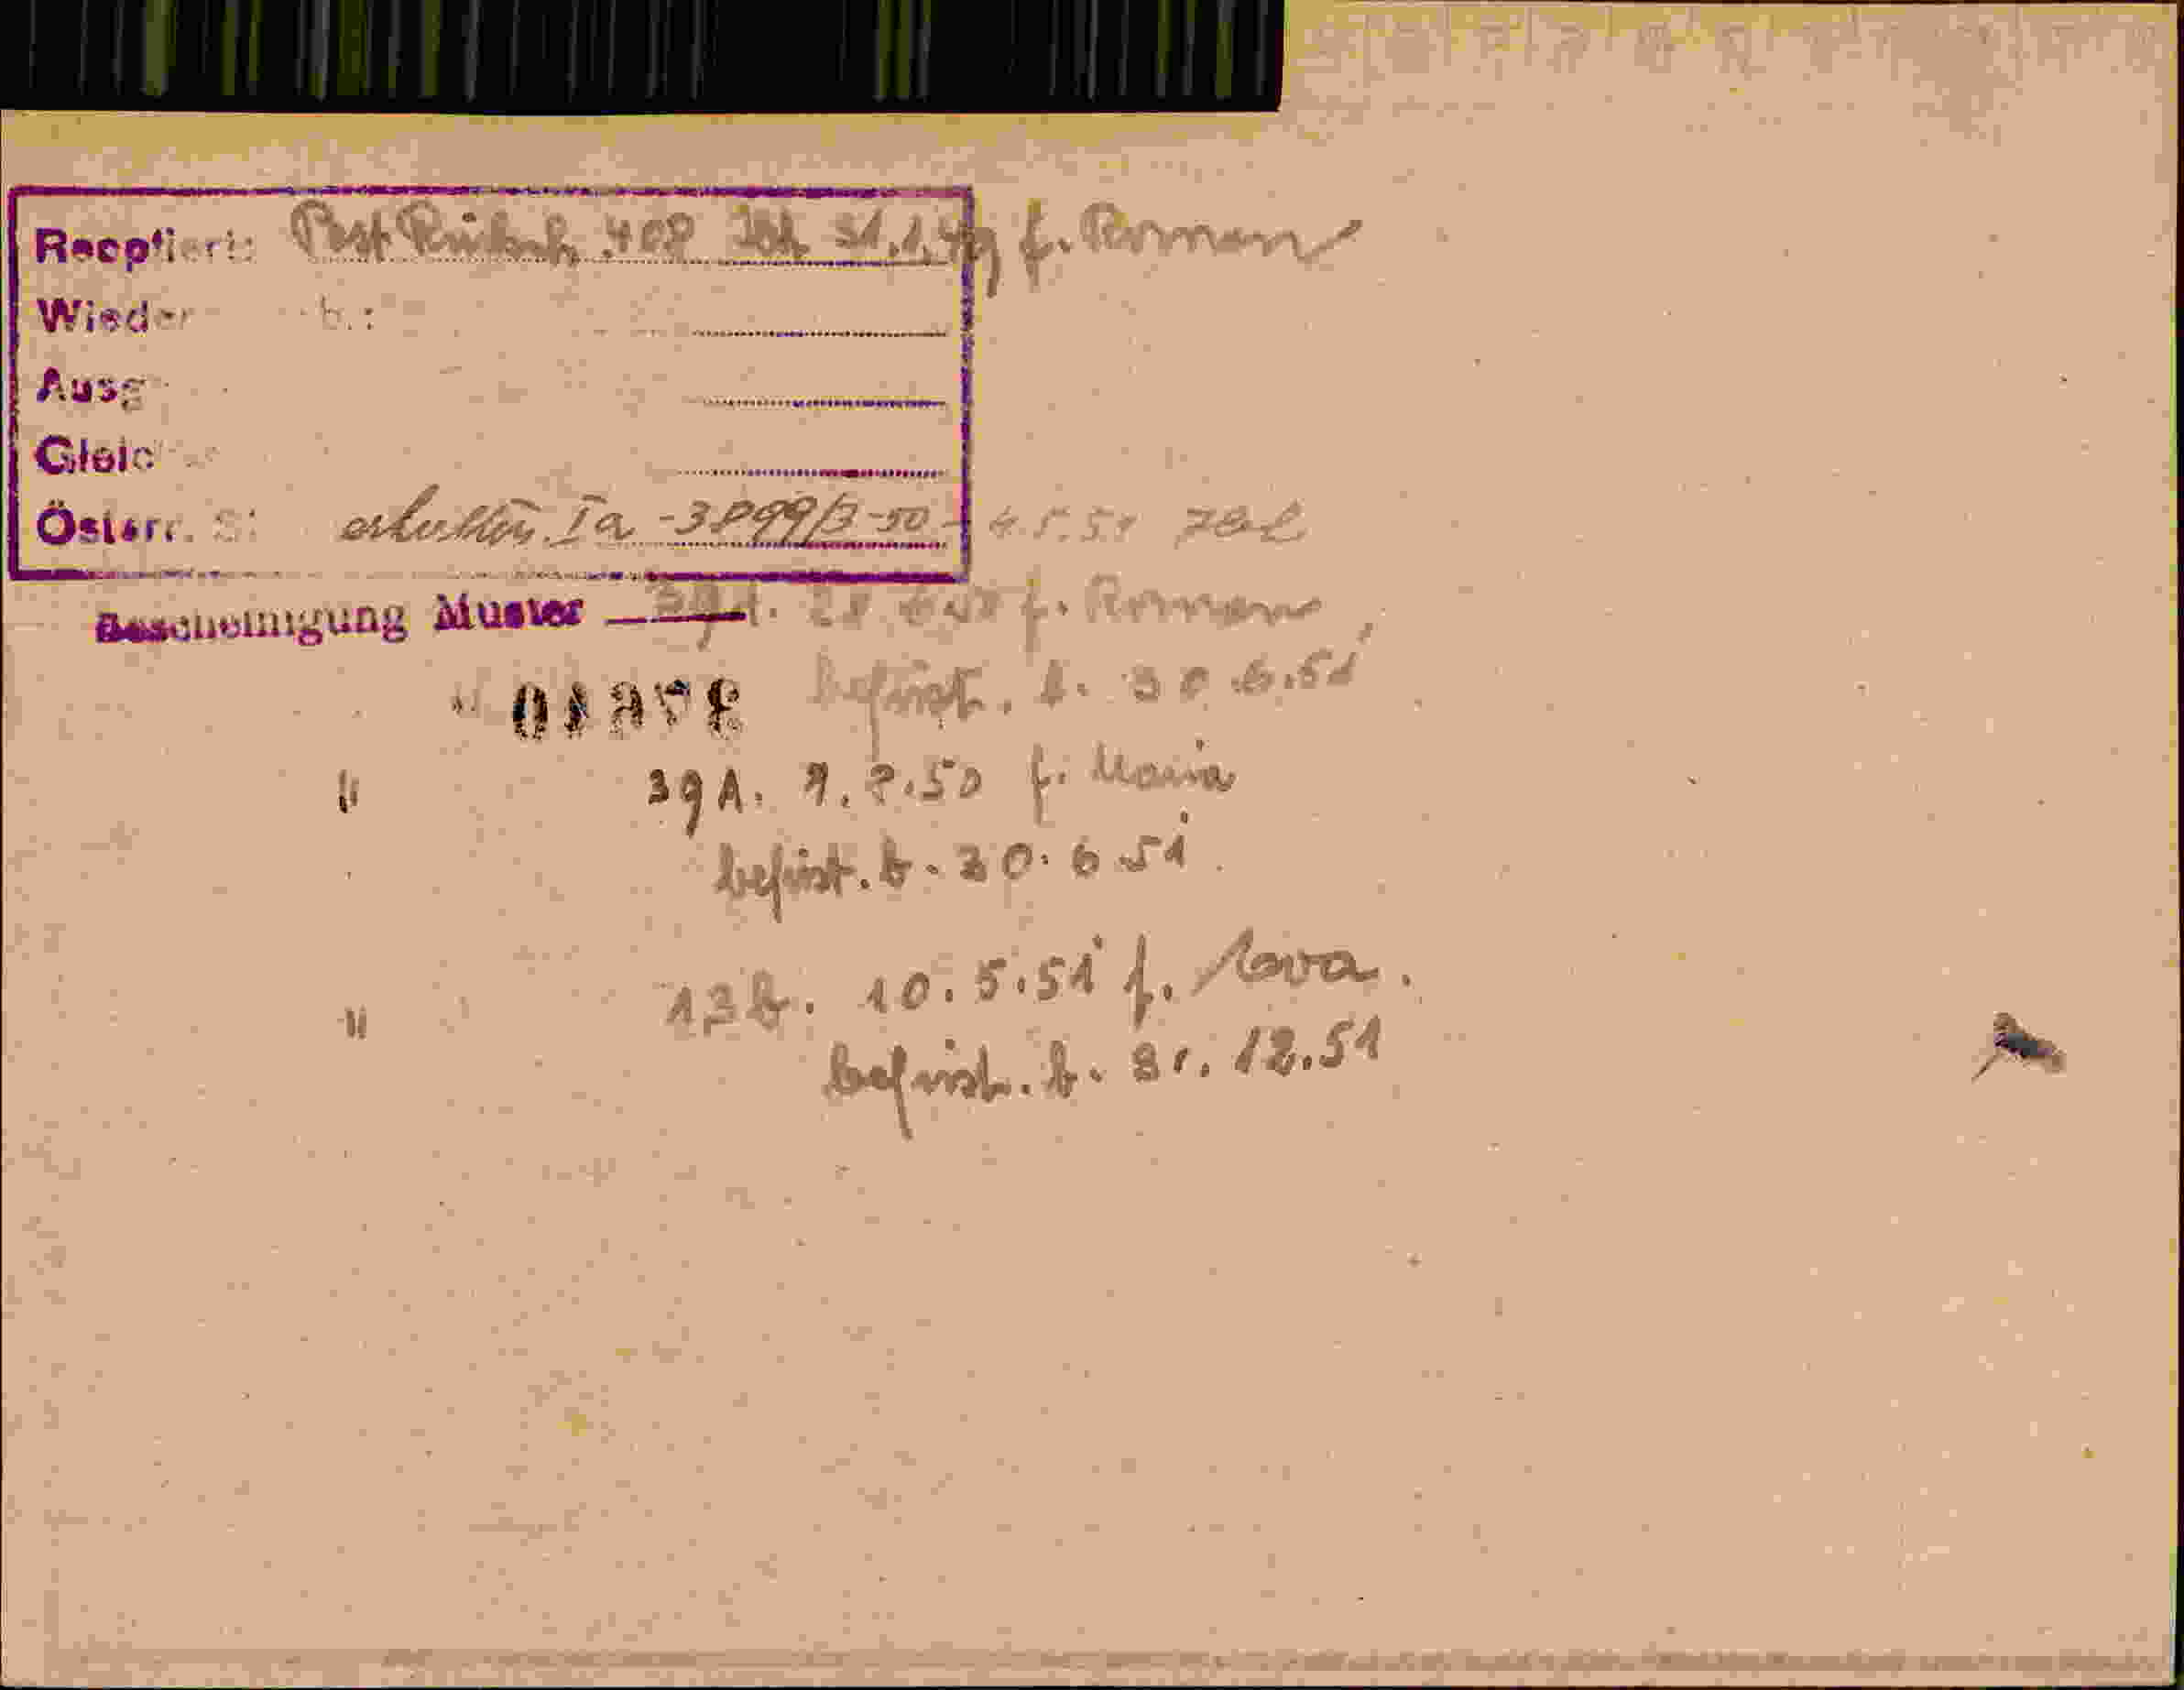 Reoptiert: Post Rückach. 408 31.1.49 f. Roman
Wieder b.:
Ausg
Gleich
Österr. S: erhalten Ia -3899/3-50- 4.5.51
Bescheinigung Muster 39A. 28 6.50 f. Roman
" befrist. b. 30.6.51
" 39A. 7.8.50 f. Maria
befrist. b. 30.6.51.
" 13b. 10.5.51 f.
befrist. b. 31.12.51